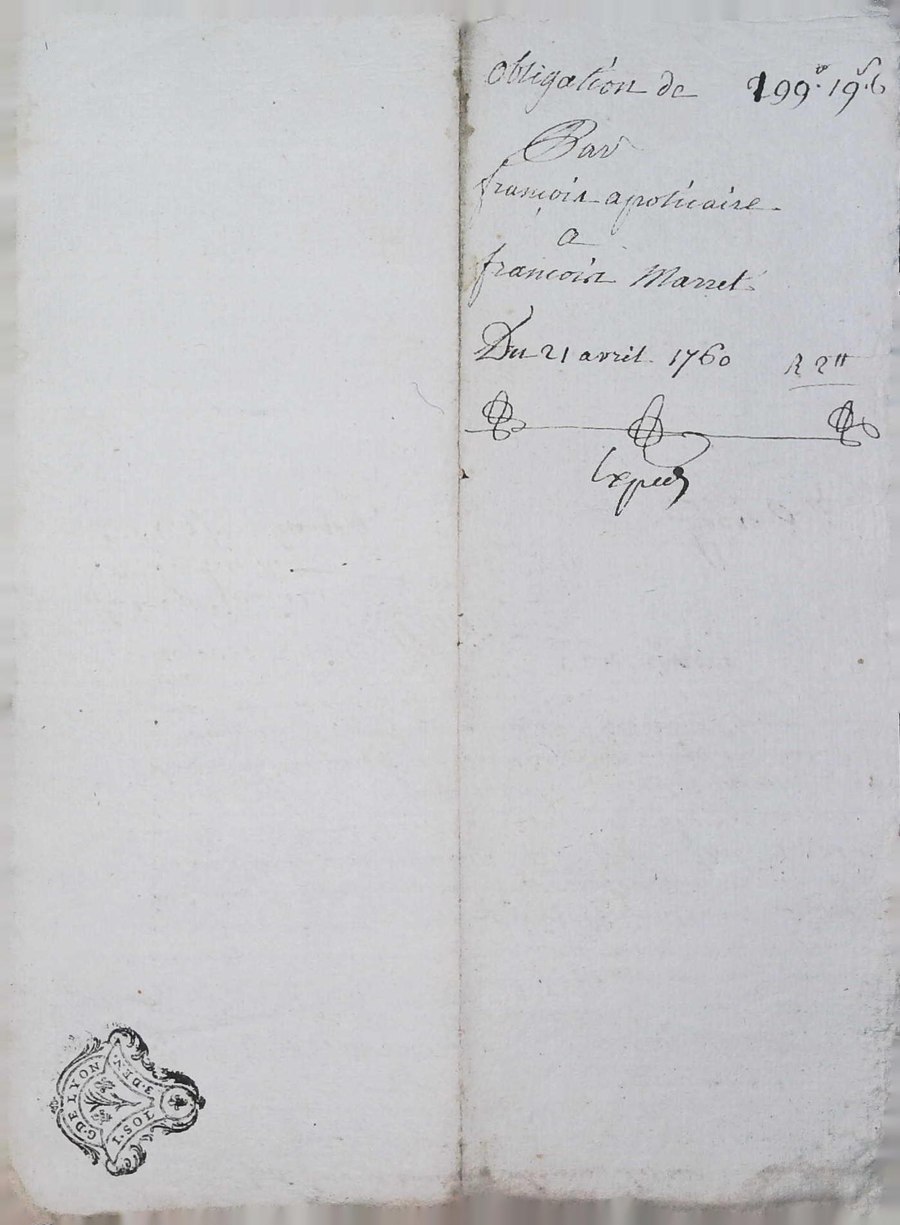 obligation de 199# 19s 6
Par
françois apoticaire
a
françois Marret
Du 21 avril 1760 R 2tt
Exped
G. DE LYON
1. SOL
3. DEN.